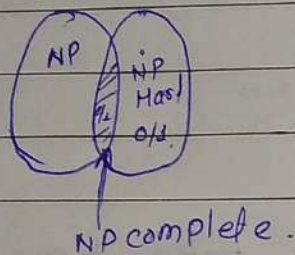 NP
NP
Hard
0/1
0/1.
NP complete.